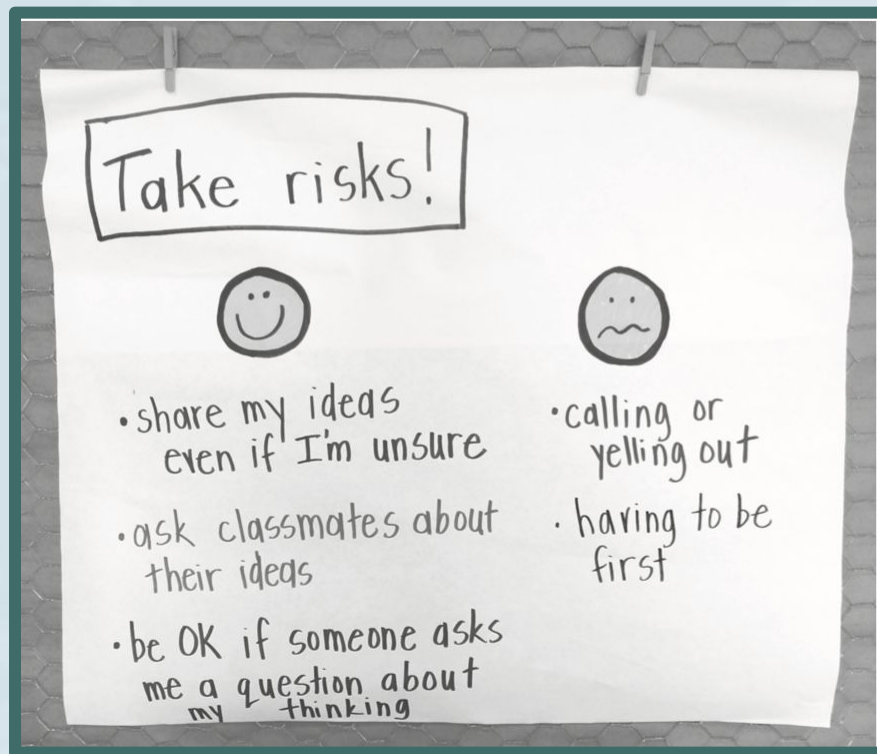 Take risks!
• share my ideas
even if I'm unsure
• ask classmates about
their ideas
• be OK if someone asks
me a question about
my thinking
• calling or
yelling out
• having to be
first